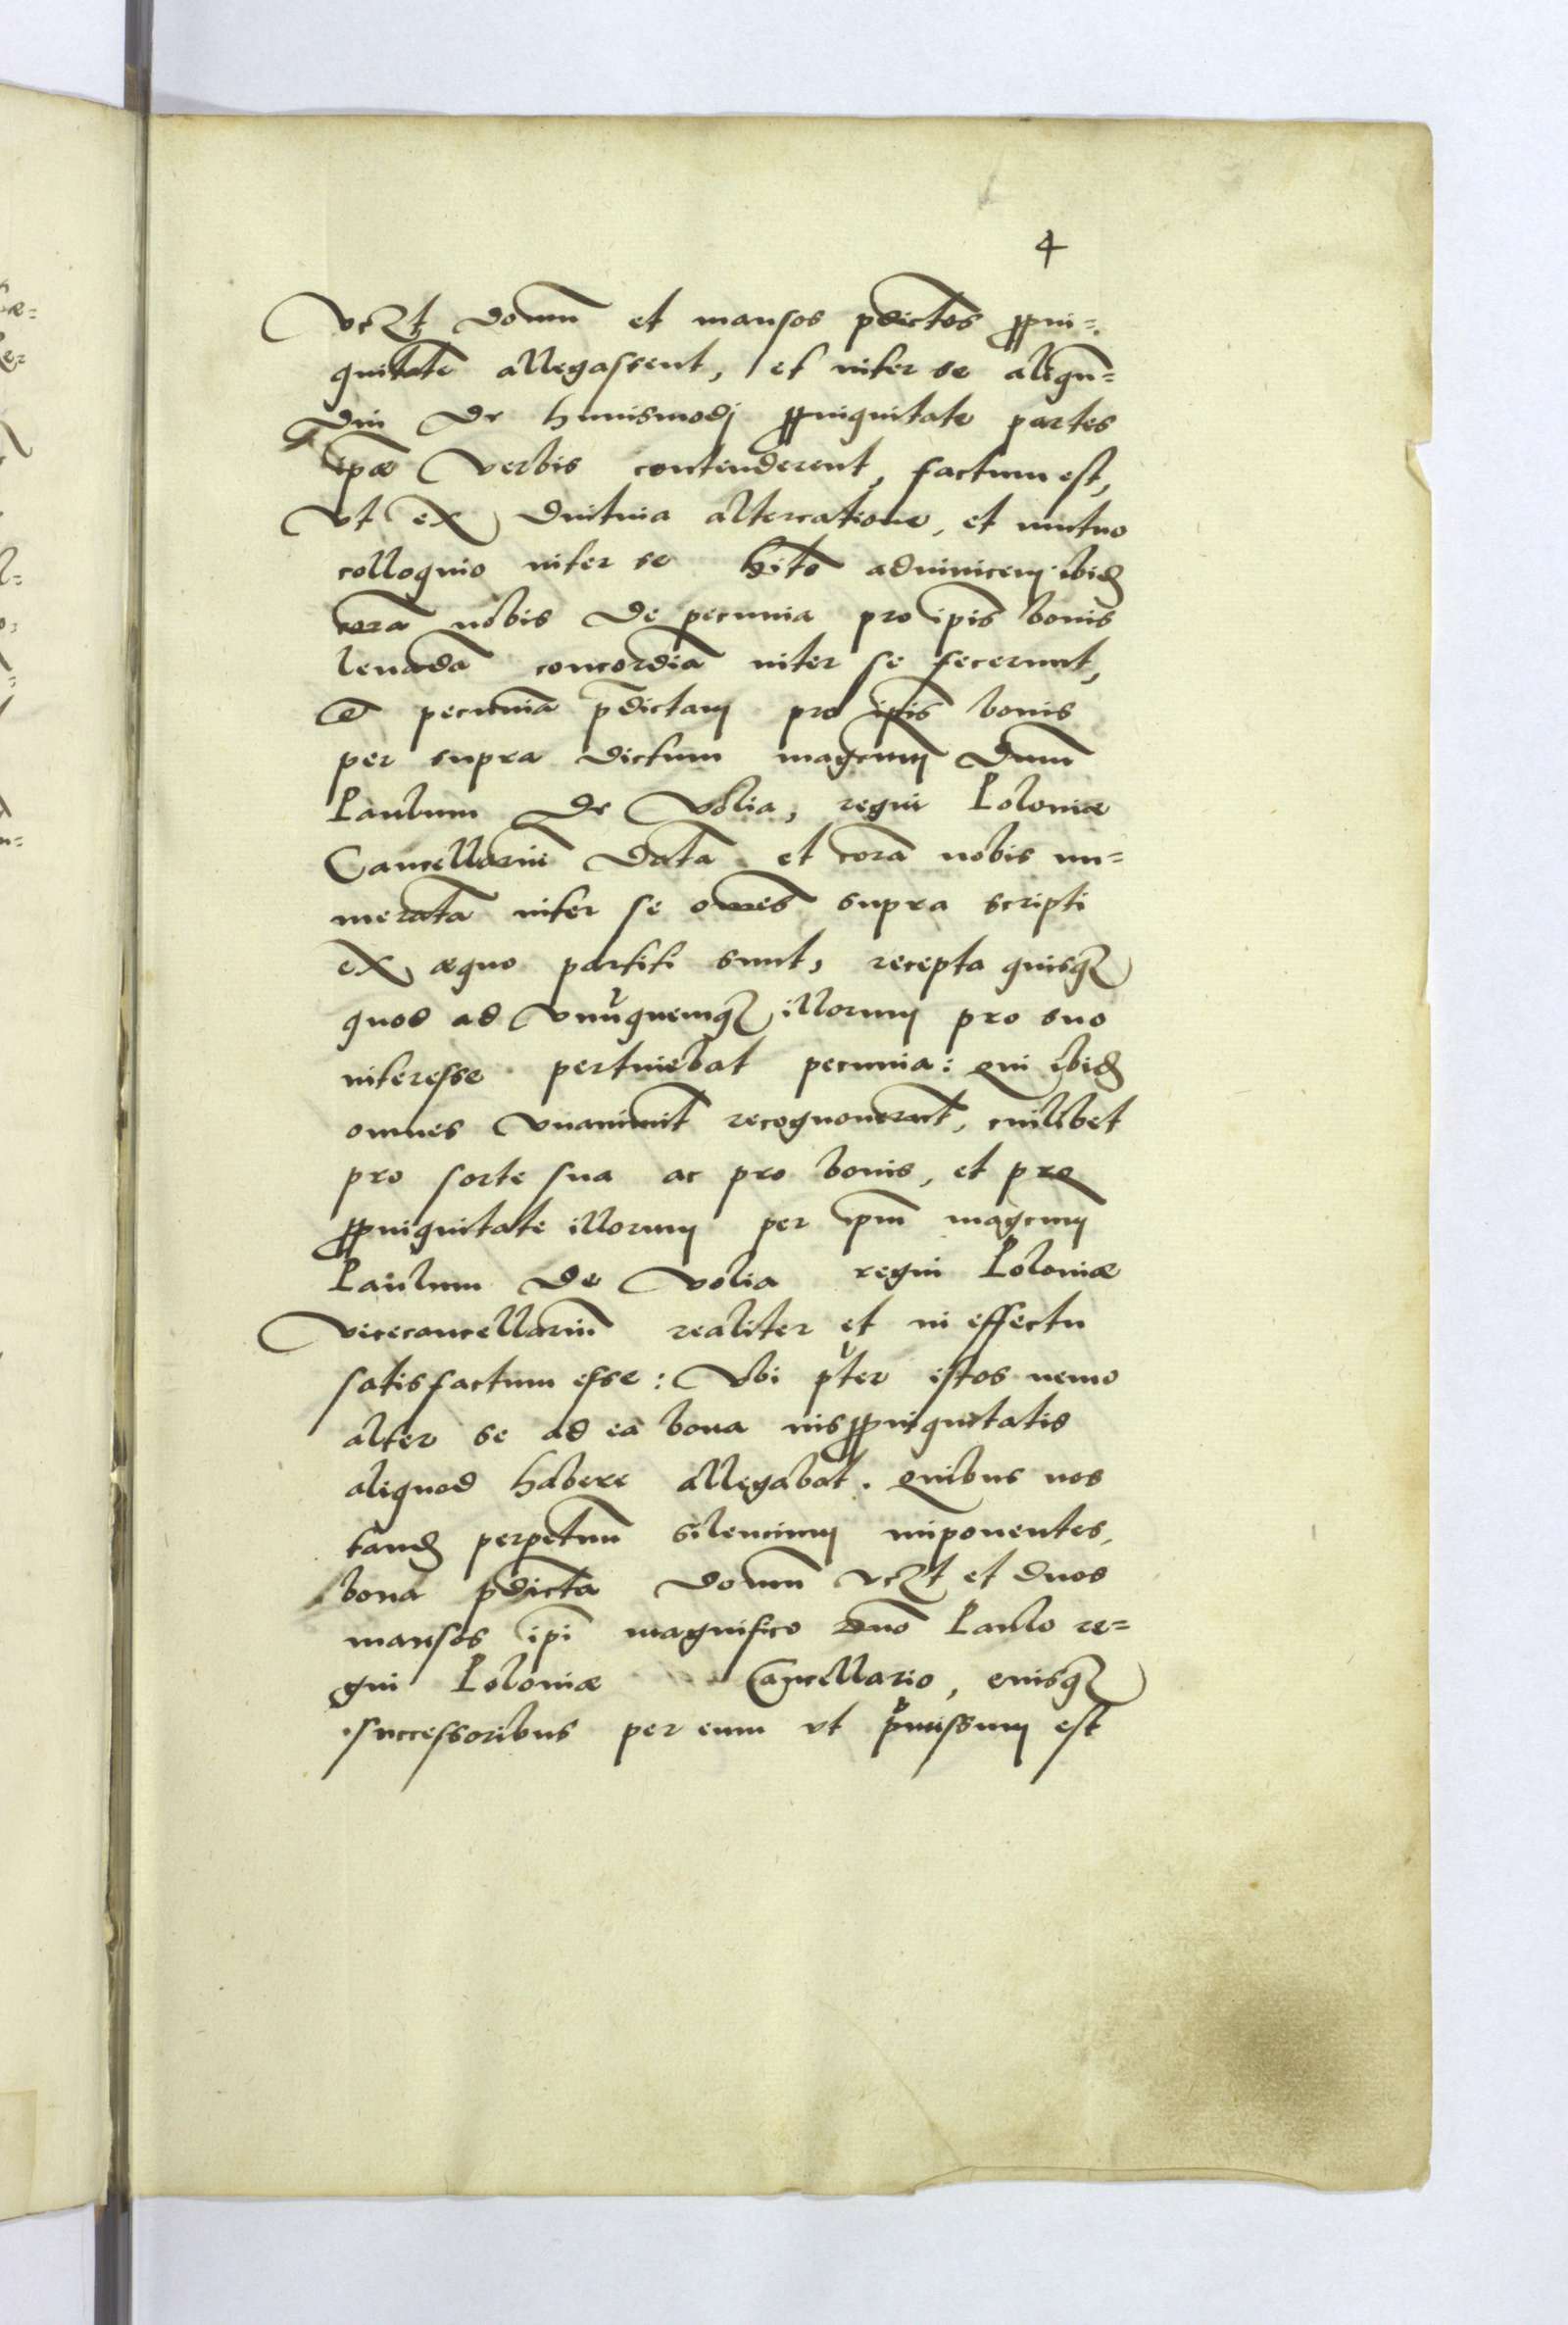 4
vczt domū et mansos pdictos ppin=
quitatē allegassent, et inter se aliqn̄=
diu de huiusmodj ppinquitate partes
ipæ verbis contenderent, factum est,
vt ex diutina altercatione, et mutuo
colloquio inter se hito adinuicem ibid
corā nobis de pecunia pro ipis bonis
leuādā concordiā inter se fecerunt,
et pecuniā p̄dictam pro ipis bonis
per supra dictum magcum Dnm̄
Paulum de Volia, regni Poloniæ
Cancellariū datā et corā nobis nu=
meratā inter se om̄es supra scripti
ex æquo partiti sunt, recepta quisq3
quod ad vnūquemq3 illorum pro suo
interesse pertinebat pecunia: qui ibid
omnes vnanimit̄ recognouerūt, cuilibet
pro sorte sua ac pro bonis, et pro
ppinquitate illorum per ipm̄ magcum
Paulum de Volia regni Poloniæ
vicecancellariū realiter et in effectu
satisfactum esse: Vbi pter istos nemo
alter se ad ea bona iusppinquitatis
aliquod habere allegabat. Quibus nos
tand perpetuū silencium imponentes,
bona pdicta domū vczt et duos
mansos ipi magnifico Dno Paulo re=
gni Poloniæ Cancellario, eiusq3
successoribus per eum vt pmissum est